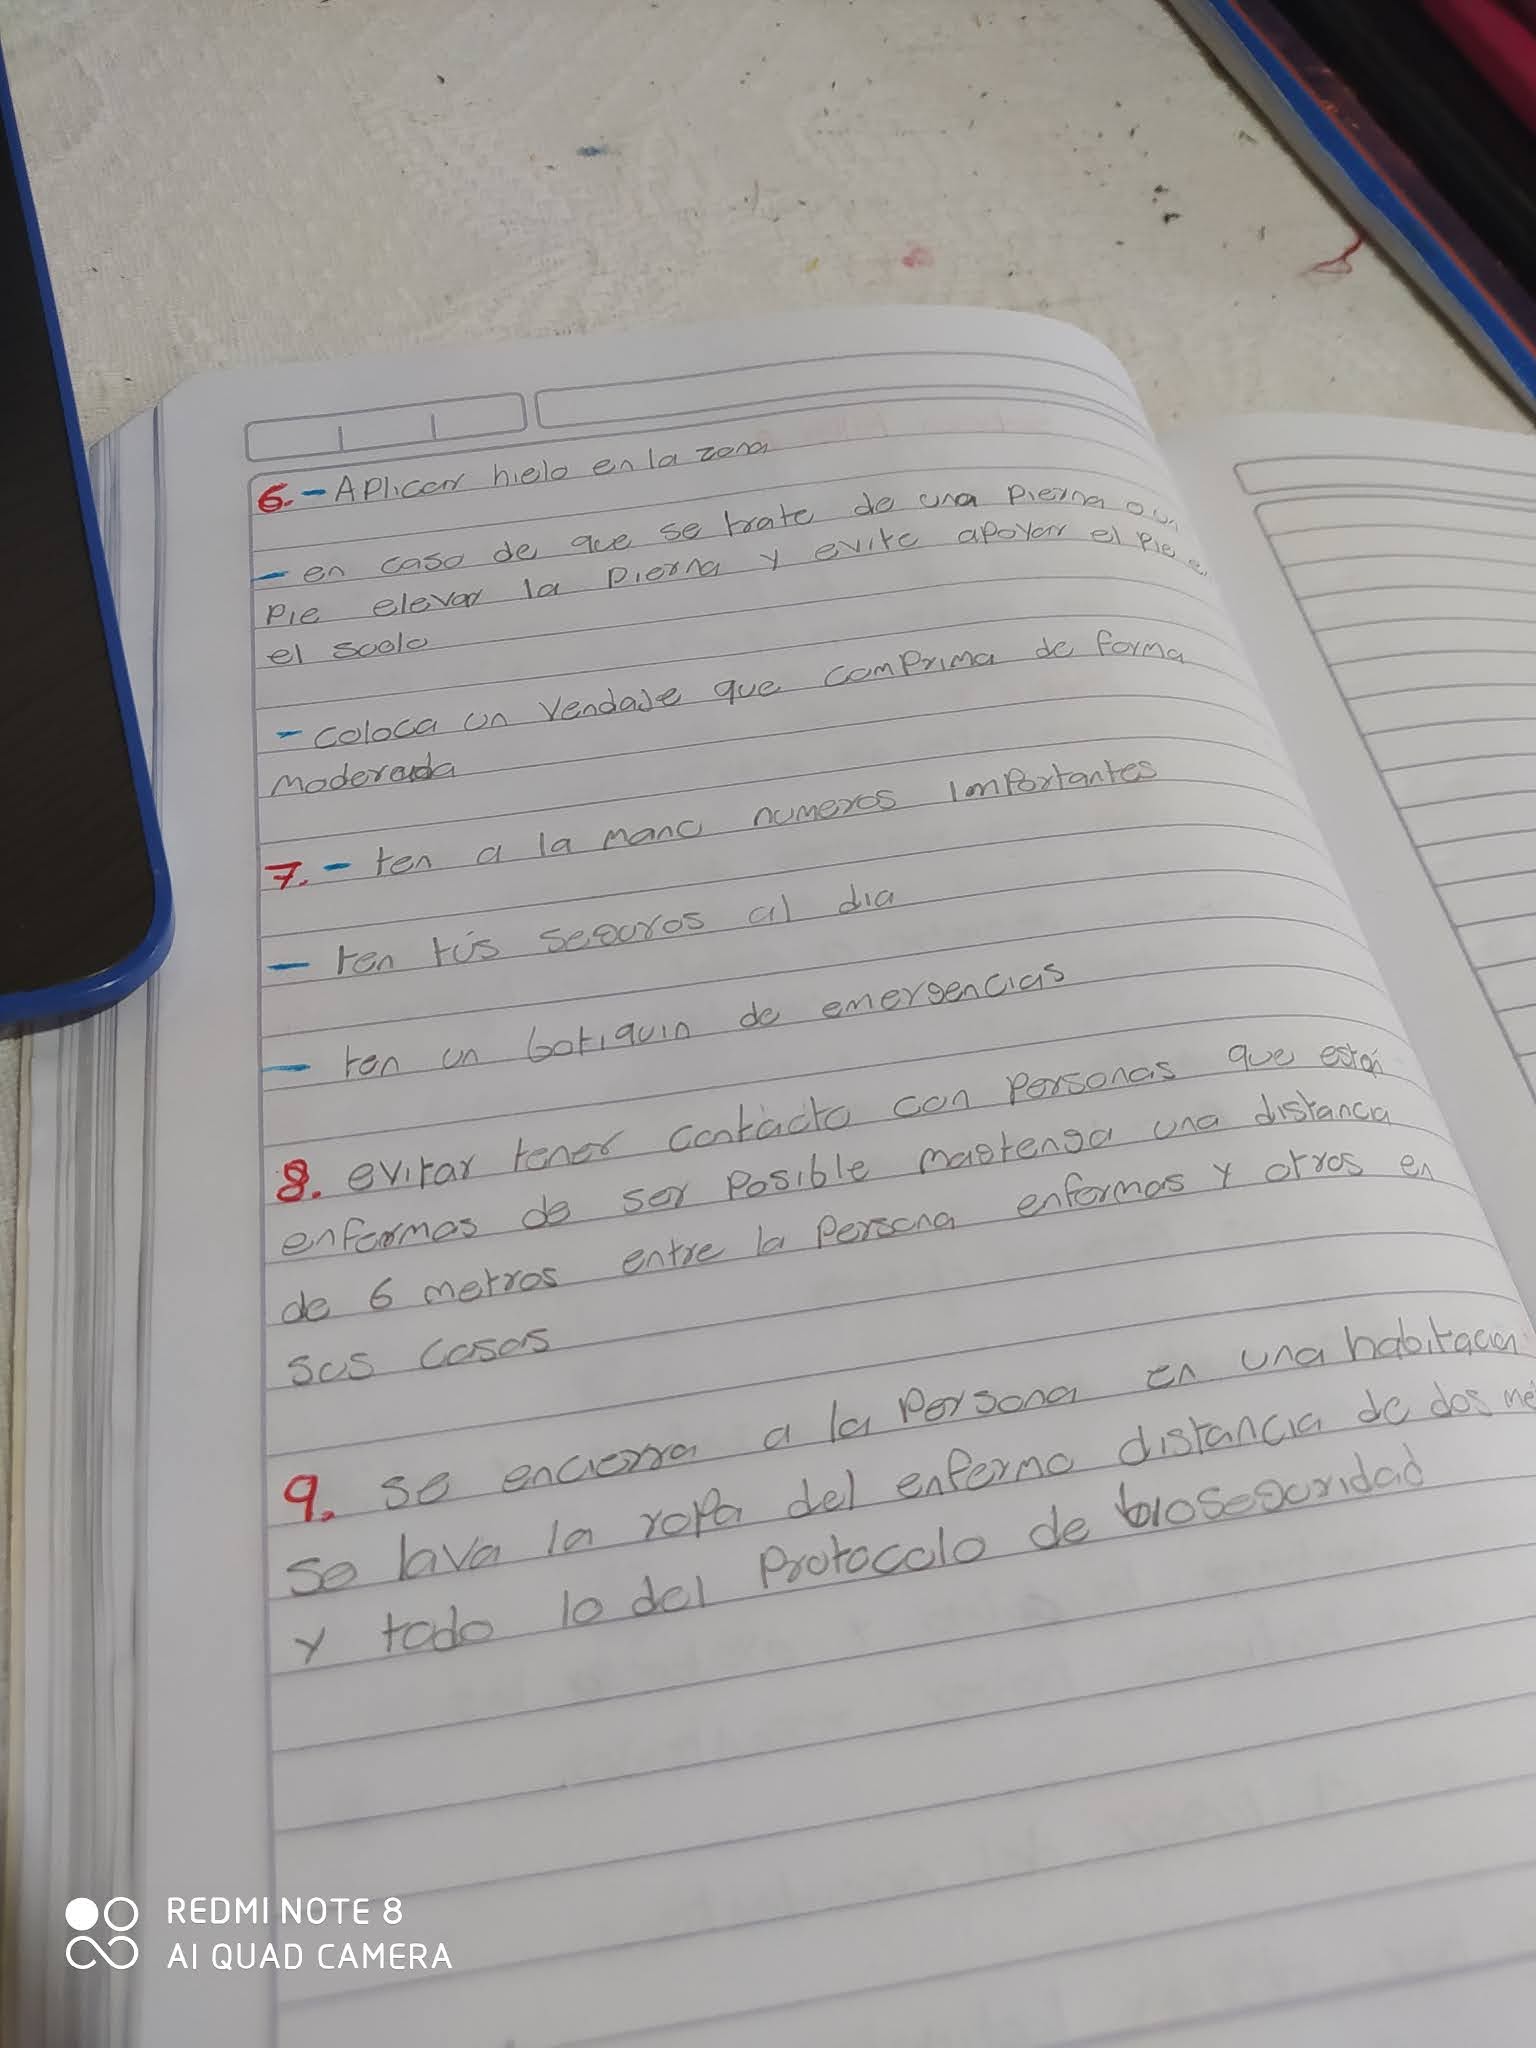 6. - Aplicar hielo en la zona
- en caso de que se trate de una pierna o un
pie elevar la pierna y evite apoyar el pie e
el suelo
- coloca un vendaje que comprima de forma
moderada
7. - ten a la mano numeros importantes
- ten tus seguros al dia
- ten un botiquin de emergencias
8. evitar tener contacto con personas que están
enfermas de ser posible mantenga una distancia
de 6 metros entre la persona enfermas y otros en
sus casas
9. se encierra a la persona en una habitacion
se lava la ropa del enfermo distancia de dos me
y todo lo del protocolo de bioseguridad
REDMI NOTE 8
AI QUAD CAMERA